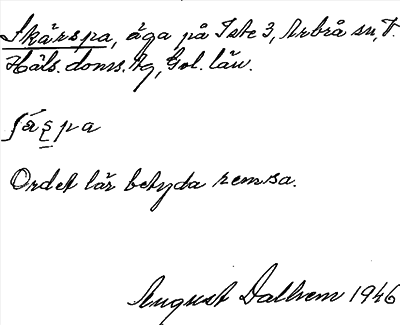 Skärspa, äga på Iste 3, Arbrå sn, V.
Häls. doms. tg, Gvl. län.
ʃä̀s̠pa
Ordet lär betyda remsa.
August Dallrem 1946